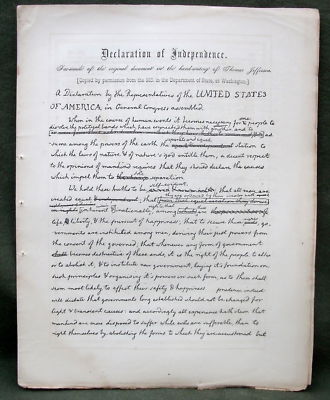 Declaration of Independence.
Facsimile of the original document in the handwriting of Thomas Jefferson.
[Copied by permission from the MS. in the Department of State, at Washington.]
A Declaration by the Representatives of the UNITED STATES
OF AMERICA, in General Congress assembled.
When in the course of human events it becomes necessary for one people to
dissolve the political bands which have connected them with another, and to
assume among the powers of the earth the separate and equal station to
which the laws of nature & of nature's god entitle them, a decent respect
to the opinions of mankind requires that they should declare the causes
which impel them to the separation.
self-evident
We hold these truths to be that all men are
created equal
rights; that among these are
life, liberty, & the pursuit of happiness; that to secure these rights, go-
vernments are instituted among men, deriving their just powers from
the consent of the governed; that whenever any form of government
becomes destructive of these ends, it is the right of the people to alter
or to abolish it, & to institute new government, laying it's foundation on
such principles & organising it's powers in such form, as to them shall
seem most likely to effect their safety & happiness. prudence indeed
will dictate that governments long established should not be changed for
light & transient causes: and accordingly all experience hath shewn that
mankind are more disposed to suffer while evils are sufferable, than to
right themselves by abolishing the forms to which they are accustomed. but